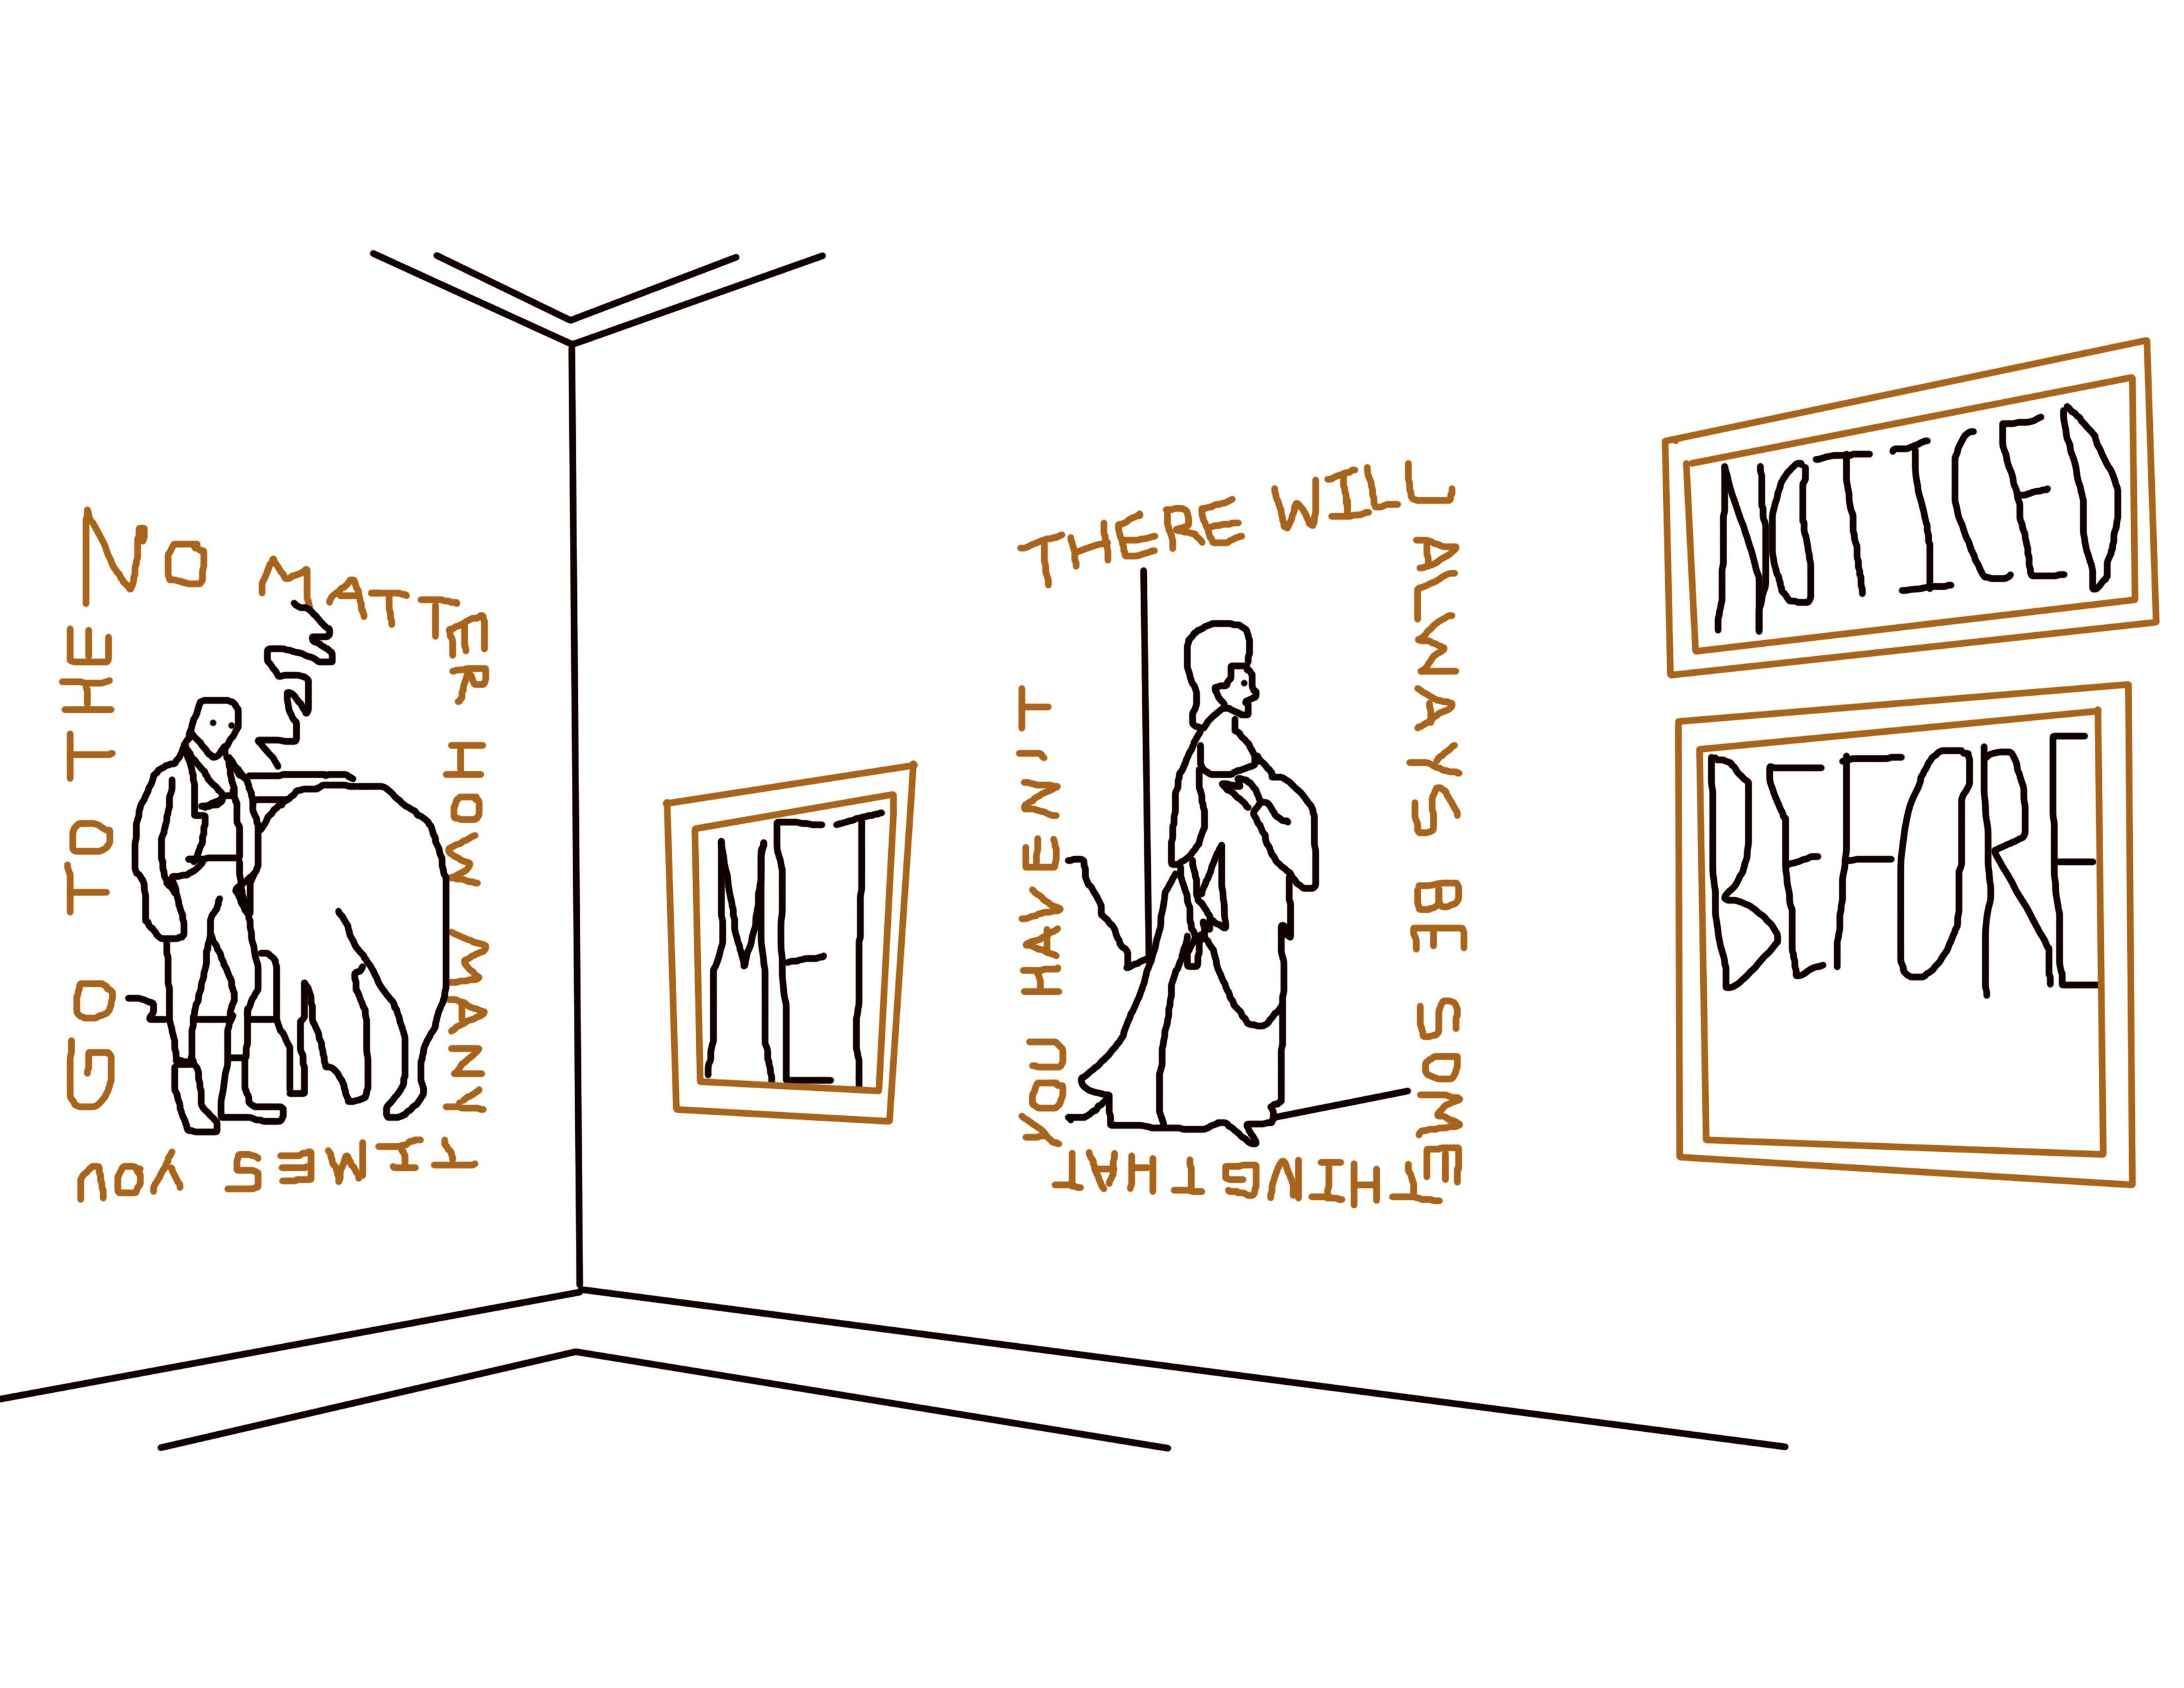 NO MATTER
HOW MANY
TIMES YOU
GO TO THE
MET
THERE WILL
ALWAYS BE SOMETHING
THAT
YOU HAVEN'T
NOTICED
BEFORE